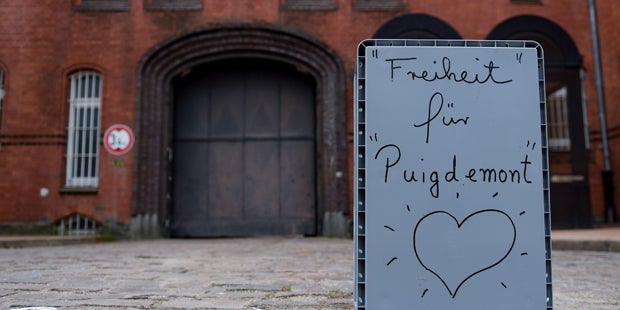 "Freiheit"
für
"Puigdemont"